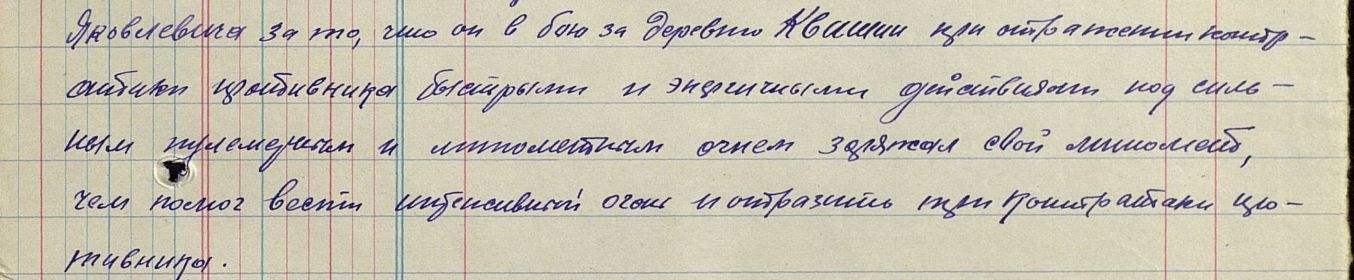 Яковлевича за то, что он в бою за деревню Квашни при отражении контр-
атаки противника быстрыми и энергичными действиями под силь-
ным пулеметным и минометным огнем заряжал свой миномет,
чем помог вести интенсивный огонь и отразить три контратаки про-
тивника.